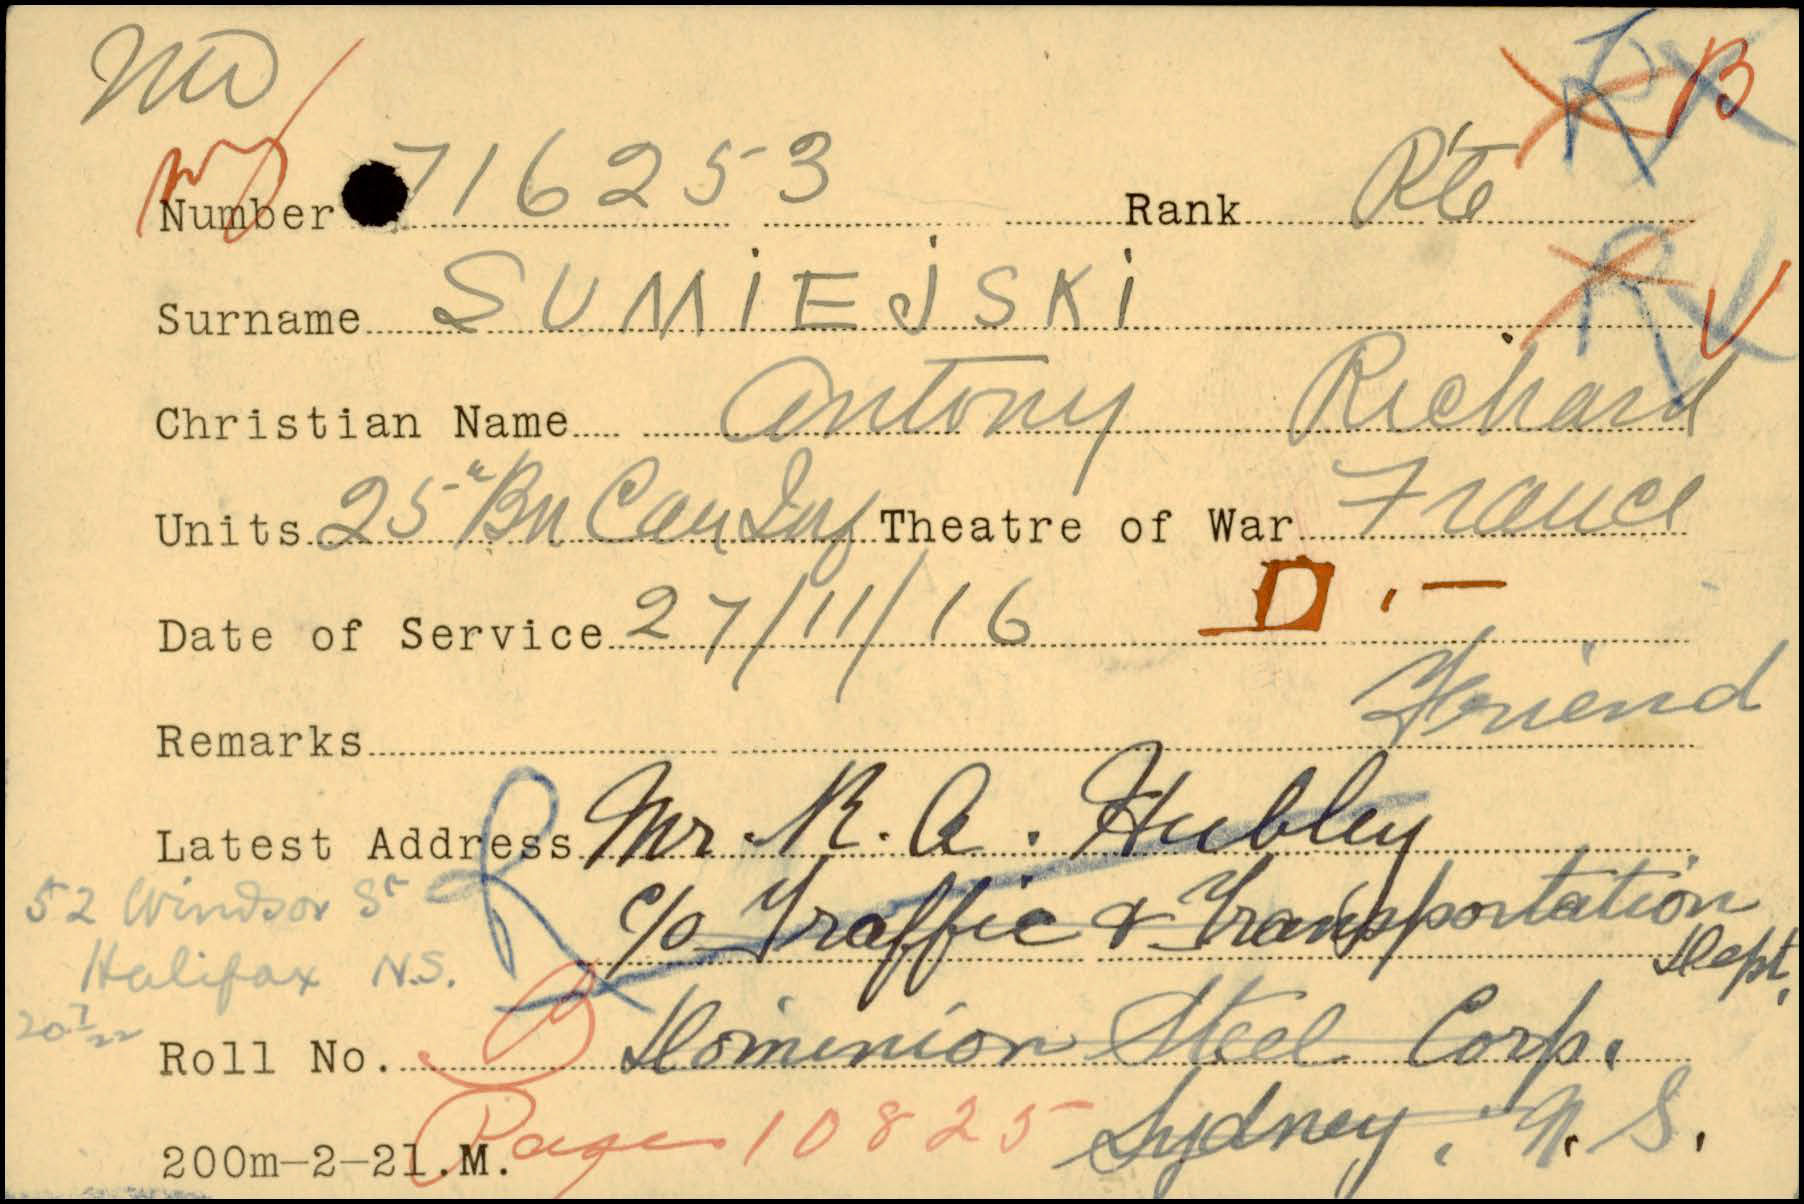 Number 716253 Rank Pte
Surname SUMIEJSKI
Christian Name Antony Richard
Units 25th Bn Can Inf Theatre of War France
Date of Service 27/11/16 D.—
Remarks Friend
Latest Address Mr. R. A. Hubley
52 Windsor St R c/o Traffic & Transportation Dept.
Halifax N.S.
Roll No. B Dominion Steel Corp.
200m-2-21.M. Page 10825 Sydney, N.S.